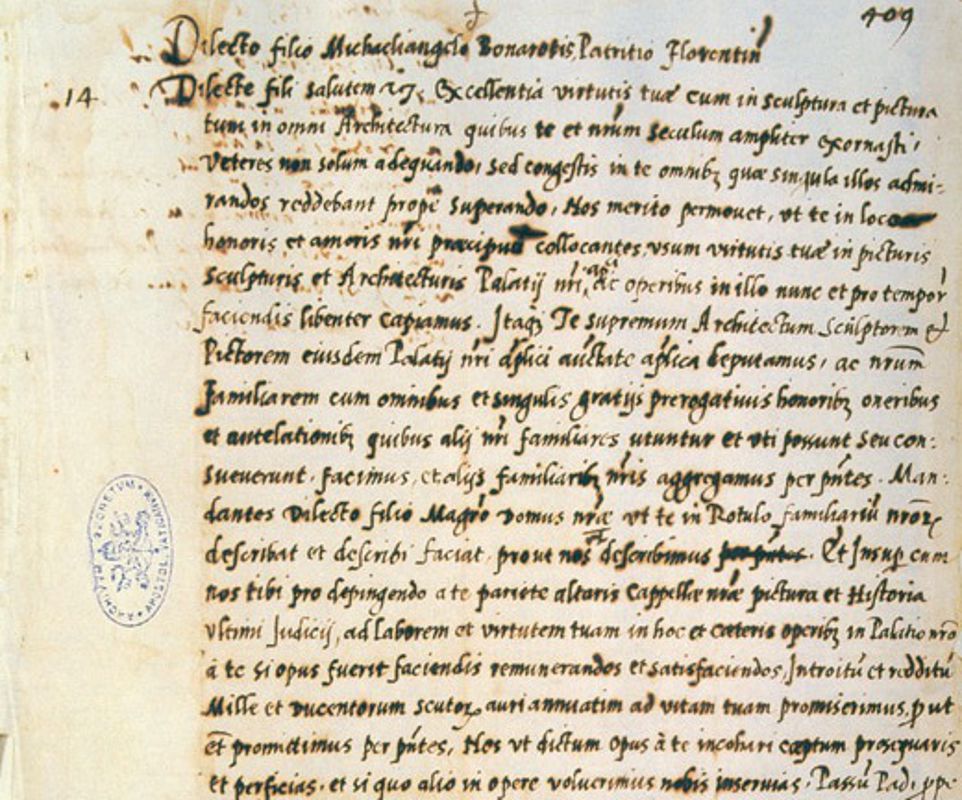 409
Dilecto filio Michaeliangelo Bonarotis Patritio Florentin
14
Dilecte fili salutem &c. Excellentia virtutis tuæ cum in sculptura et pictura
tum in omni Architectura quibus te et nrum seculum ampliter exornasti,
veteres non solum adequando, sed congestis in te omnibz quæ singula illos admi-
randos reddebant prope superando, Nos merito permovet, ut te in loco
honoris et amoris nri præcipuo collocantes, usum virtutis tuæ in picturis
sculpturis et Architecturis Palatij nri aplici ac operibus in illo nunc et pro tempore
faciendis libenter capiamus. Itaqz Te supremum Architectum sculptorem et
Pictorem eiusdem Palatij nri aplici auctate aplica deputamus, ac nrum
familiarem cum omnibus et singulis gratijs prerogativis honoribz oneribus
et antelationibz quibus alij nri familiares utuntur et uti possunt seu con:
sueverunt, facimus, et alijs familiaribz nris aggregamus per pntes. Man:
dantes dilecto filio Magro domus nræ ut te in Rotulo familiariu nror
describat et describi faciat, prout nos et describimus per pntes. Et Insup cum
nos tibi pro depingendo a te pariete altaris Cappellæ nræ pictura et Historia
ultimi Judicij, ad laborem et virtutem tuam in hoc et cæteris operibz in Palatio nro
à te si opus fuerit faciendis remunerandos et satisfaciendos, Introitu et redditu
Mille et ducentorum scutor auri annuatim ad vitam tuam promiserimus, put
et promittimus per pntes, Nos ut dictum opus à te incohari cæptum prosequaris
et perficias, et si quo alio in opere voluerimus nobis inservias, Passu Pad. ppe
ARCHIVIO SECRETUM APOSTOL